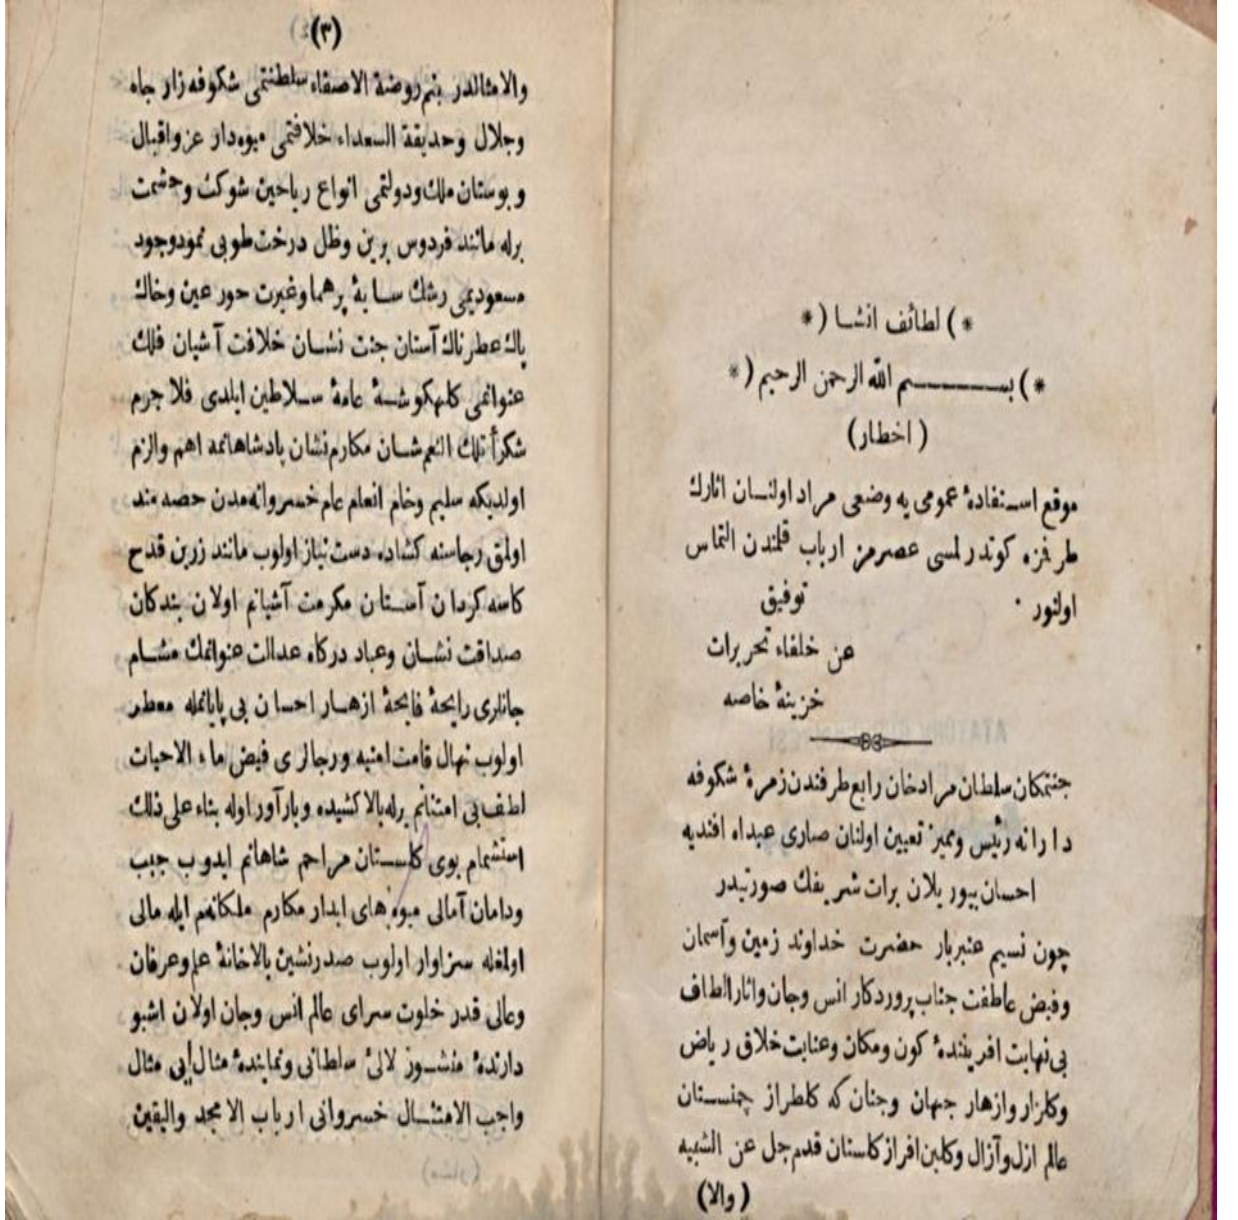 *) لطائف انشا (*
*) بسم الله الرحمن الرحيم (*
( اخطار )
موقع استفادهٔ عمومی یه وضعی مراد اولنان اثارك
طرفمزه كوندرلمسی عصرمز ارباب قلمندن التماس
اولنور ·
توفیق
عن خلفاء تحریرات
خزینهٔ خاصه
جنتمكان سلطان مرادخان رابع طرفندن زمرهٔ شكوفه
دارانه رئیس وممیز تعیین اولنان صاری عبداه افندیه
احسان بیوریلان برات شریفك صورتیدر
چون نسیم عنبربار حضرت خداوند زمین وآسمان
وفیض عاطفت جناب پروردكار انس وجان واثار الطاف
بی نهایت افرینندهٔ كون ومكان وعنایت خلاق ریاض
وكلزار وازهار جهان وجنان كه كلطراز چمنستان
عالم ازل وآزال وكلبن افراز كلستان قدم جل عن الشبیه
( والا )
(٣)
والامثالدر بنم روضة الاصفاء سلطنتمی شكوفه زار جاه
وجلال وحدیقة السعداء خلافتمی میوه دار عز واقبال
وبوستان ملك ودولتمی انواع ریاحین شوكت وحشمت
برله مانند فردوس برین وظل درخت طوبی نمود وجود
مسعودیمی رشك سایهٔ پرهما وغیرت حور عین وخاك
پاك عطرناك آستان جنت نشان خلافت آشیان فلك
عنوانمی كلهكوشهٔ عامهٔ سلاطین ایلدی فلا جرم
شكرأ تلك النعم شان مكارم نشان پادشاهانمه اهم والزم
اولدیكه سلیم وخام انعام عام خسروانه مدن حصه مند
اولمق رجاسنه كشاده دست نیاز اولوب مانند زرین قدح
كاسه كردان آستان مكرمت آشیانم اولان بندكان
صداقت نشان وعباد دركاه عدالت عنوانمك مشام
جانلری رایحهٔ فایحهٔ ازهار احسان بی پایانمله معطر
اولوب نهال قامت امنیه ورجالری فیض ماء الاحیات
لطف بی امتنانم برله بالا كشیده وبارآور اوله بناء علی ذلك
استشمام بوی كلستان مراحم شاهانم ایدوب جیب
ودامان آمالی میوه های ابدار مكارم ملكانهم ایله مالی
اولمغله سزاوار اولوب صدرنشین بالاخانهٔ علم وعرفان
وعالی قدر خلوت سرای عالم انس وجان اولان اشبو
دارندهٔ منشور لالئ سلطانی ونمایندهٔ مثال بی مثال
واجب الامتثال خسروانی ارباب الامجد والیقین